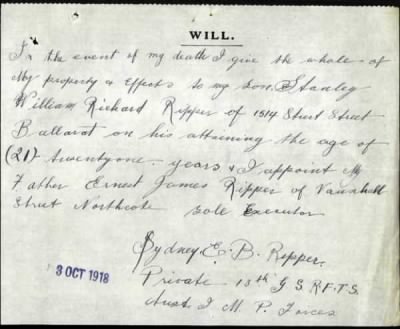 WILL.
In the event of my death I give the whole of
My property & Effects to my son Stanley
William Richard Ripper of 1514 Sturt Street
Ballarat on his attaining the age of
(21) twentyone years & I appoint My
Father Ernest James Ripper of Vauxhall
Street Northcote sole Executor
Sydney. E. B. Ripper.
Private 13th G.S.R.F.T.S.
Aust. I. M. P. Forces
3 OCT 1918